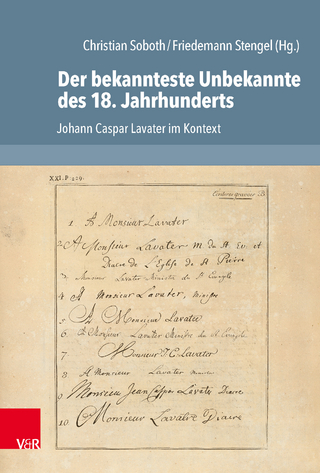 Christian Soboth/Friedemann Stengel (Hg.)
Der bekannteste Unbekannte
des 18. Jahrhunderts
Johann Caspar Lavater im Kontext
XXI. P. 219.
1 A Monsieur Lavater
2 A Monsieur Lavater M du St Ev. et
Diacre de L'Eglise de St Pierre
3 Monsieur Lavater Ministre du St Evangile
4 A Monsieur Lavater, Ministre
5 A Monsieur Lavater
6 A Monsieur Lavater Ministre du St Evangile
7 Monsieur J. C. Lavater
8 A Monsieur Lavater
9 Monsieur Jean Caspar Lavater Diacre
10 Monsieur Lavatre Diacre
V&R